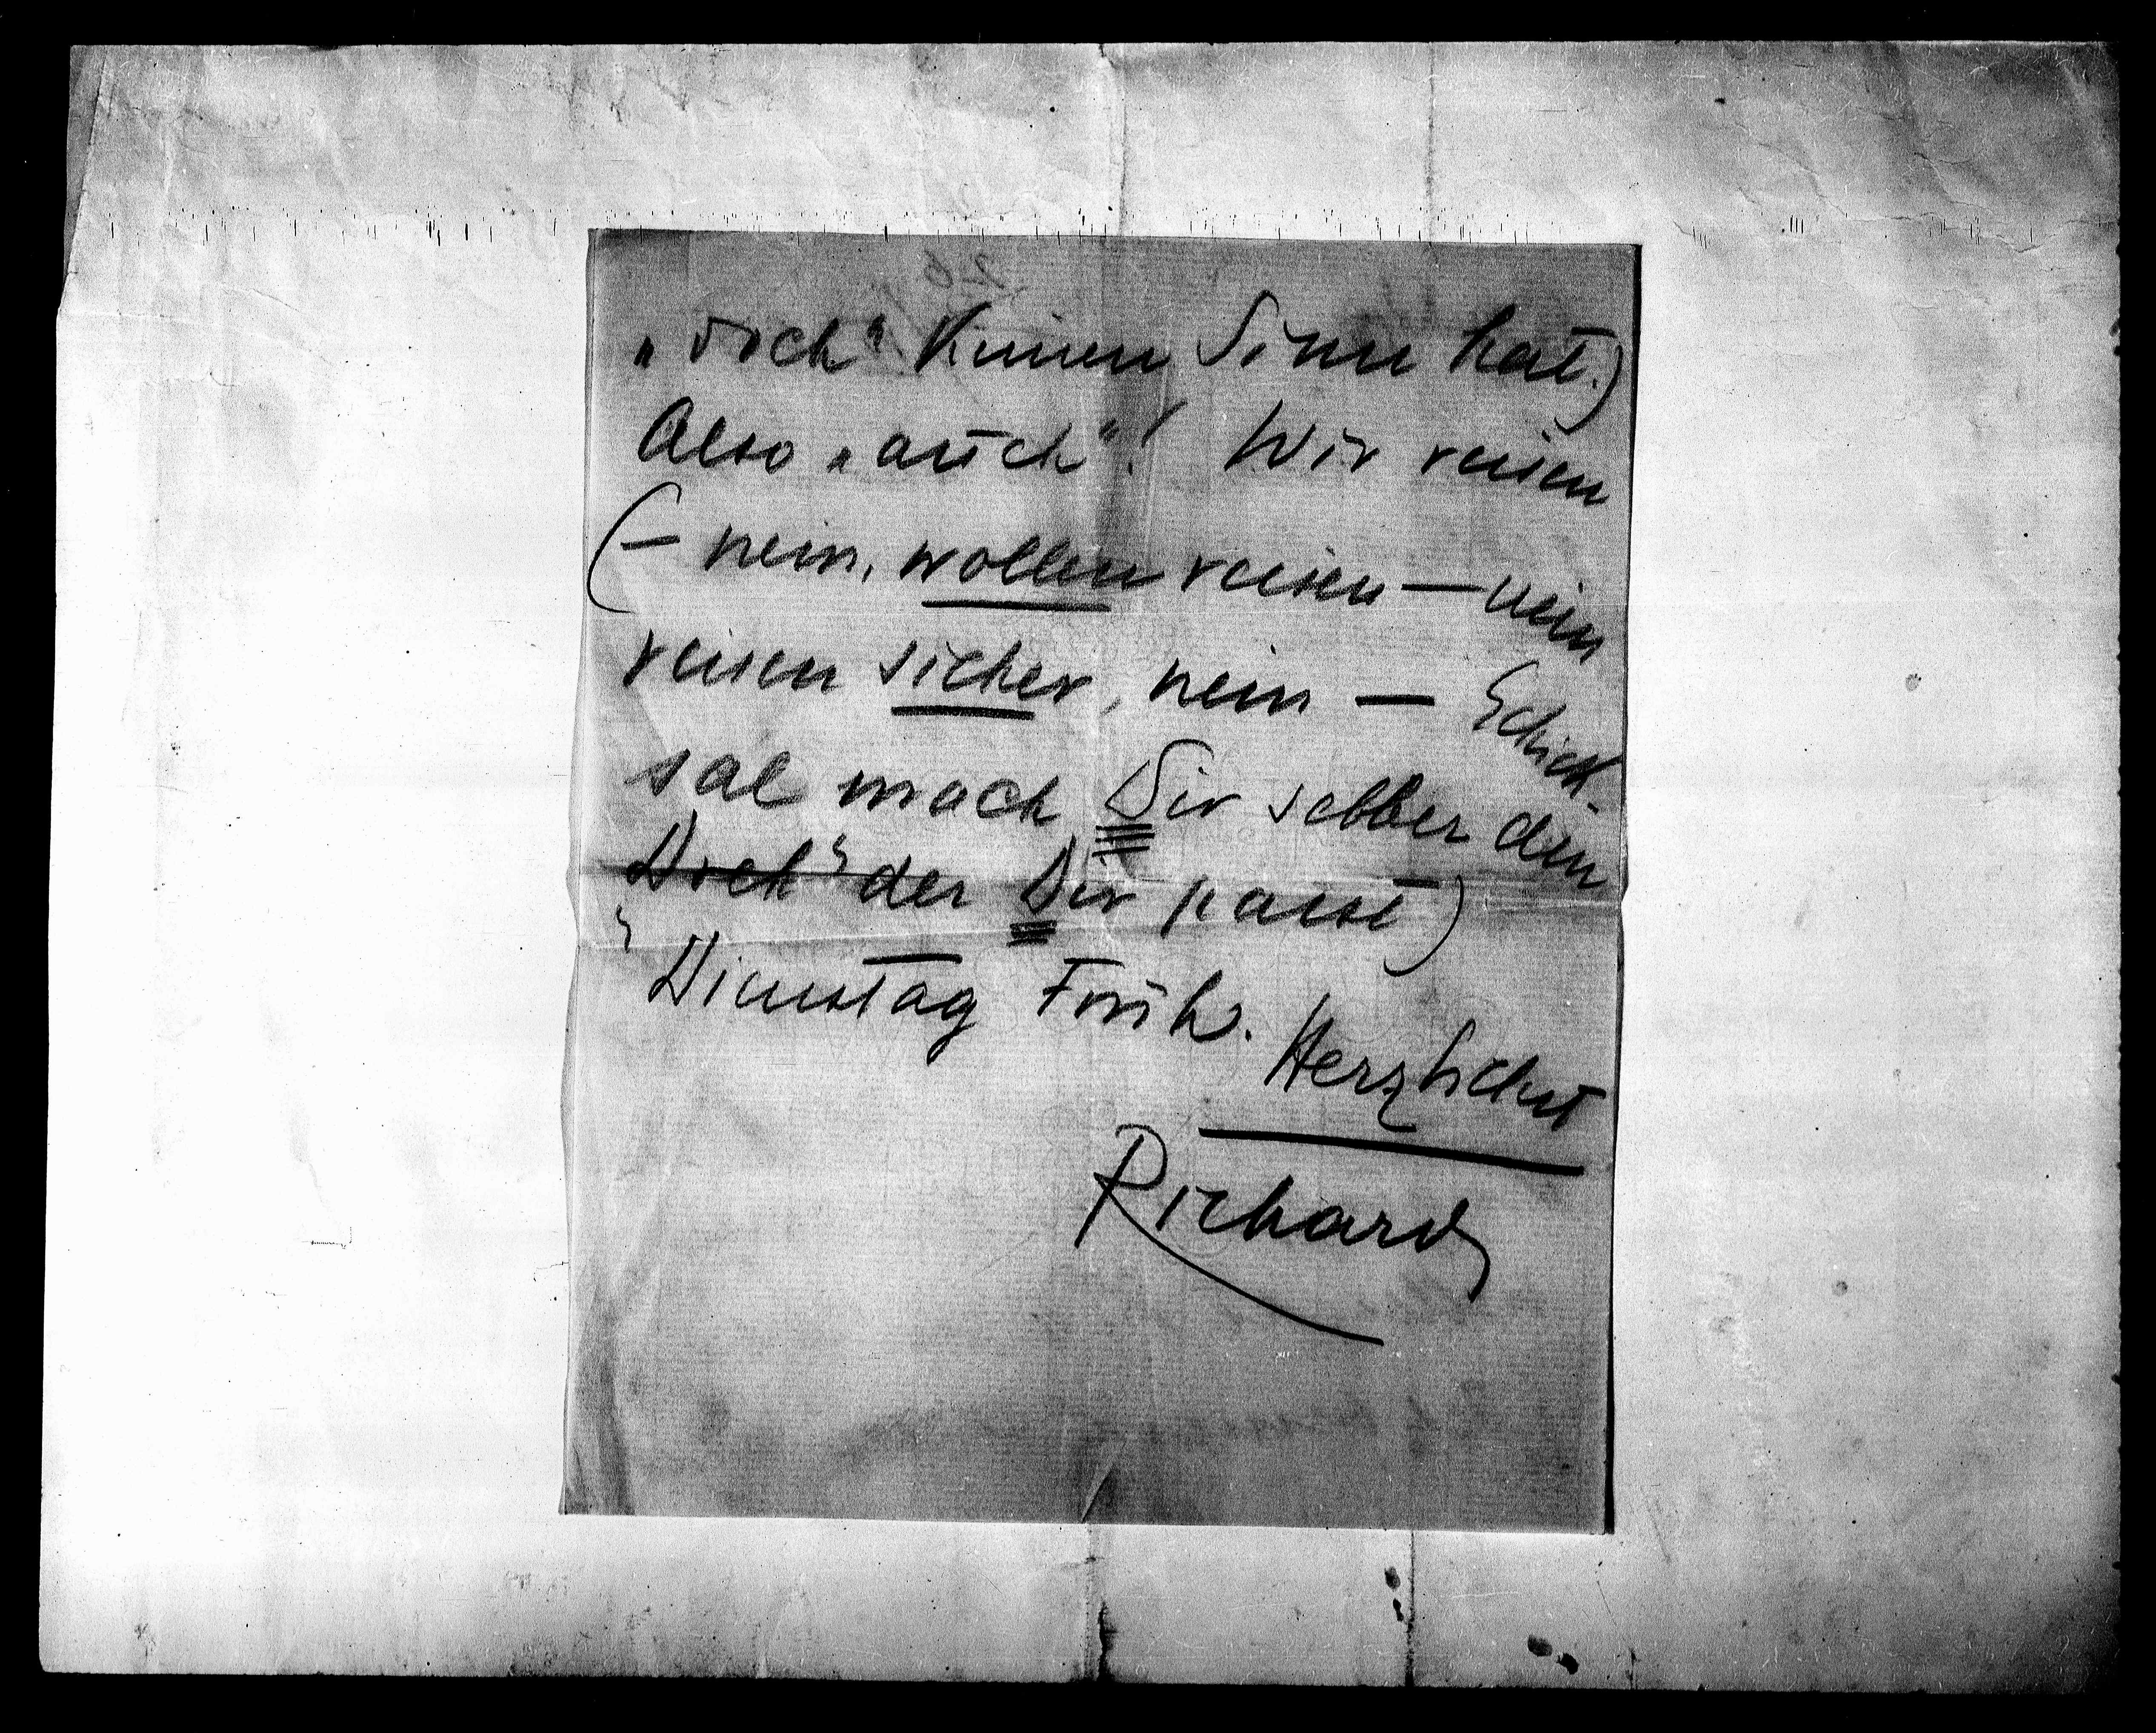 „doch“ keinen Sinn hat.)
Also „auch“! Wir reisen
(– nein, wollen reisen – nein
reisen sicher, nein – Schick-
sal mach Dir selber den
Doch der Dir passt)
Dienstag Früh.
Herzlichst
Richard